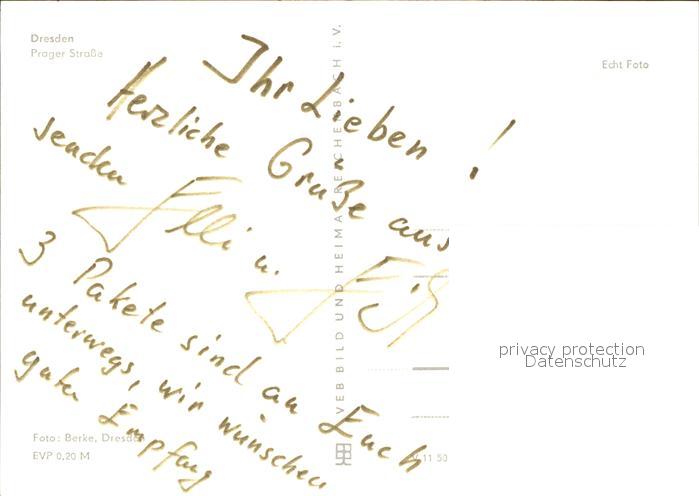 Dresden
Prager Straße
Echt Foto
Ihr Lieben !
Herzliche Grüße aus
senden Elli u.
3 Pakete sind an Euch
unterwegs, wir wünschen
guten Empfang
VEB BILD UND HEIMAT REICHENBACH i. V.
privacy protection
Datenschutz
Foto: Berke, Dresden
EVP 0,20 M
11 50